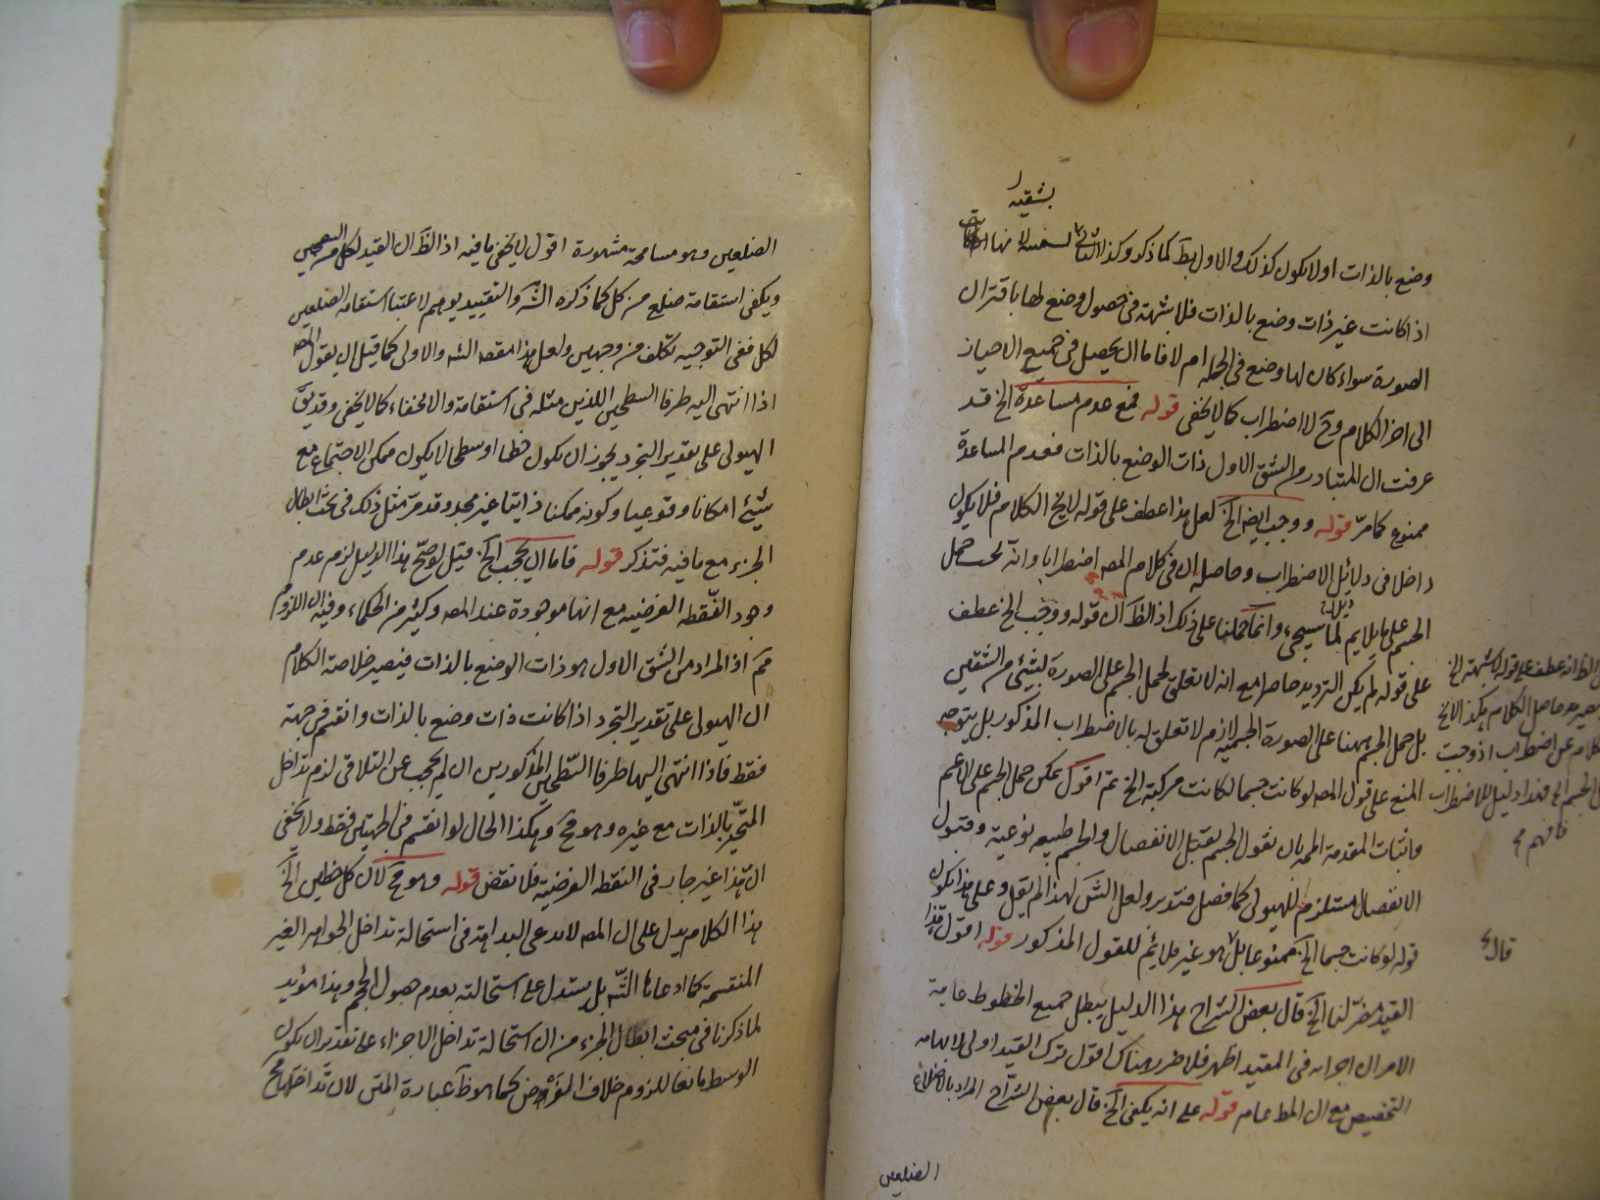 بشقيه
وضع بالذات اولا يكون كذلك والاول بط كما ذكر وكذا الثانى لانها
اذا كانت غير ذات وضع بالذات فلا شبهة فى حصول وضع لها باقتران
الصورة سواء كان لها وضع فى الجملة ام لا فاما ان يحصل فى جميع الاحياز
الى اخر الكلام وح لا اضطراب كما لا يخفى قوله فمع عدم مساعدة الخ قد
عرفت ان المتبادر من الشق الاول ذات الوضع بالذات فعدم المساعدة
ممنوع كما مرّ قوله ووجب ايضا الخ لعل هذا عطف على قوله لا يخ الكلام فلا يكون
داخلا فى دلائل الاضطراب وحاصله ان فى كلام المصه اضطرابا وانه يجب حمل
الجسم على ما يلايم لما سيجىء وانما حملنا على ذلك اذ الظ ان قوله ووجب الخ عطف
على قوله لم يكن الترديد حاصرا مع انه لا تعلق لحمل الجسم على الصورة لشيئ من الشقين
بل حمل الجسم ههنا على الصورة الجسمية لازم لا تعلق له بالاضطراب المذكور بل يتوجه
المنع على قول المصه لو كانت جسما لكانت مركبة الخ ثم اقول يمكن حمل الجسم على الاعم
واثبات المقدمة الممه بان نقول الجسم يقبل الانفصال والجسم طبيعه نوعية وقبول
الانفصال مستلزم للهيولى كما فصل فتدبر ولعل الش لهذا لم يقل وعلى هذا يكون
قوله لو كانت جسما الخ ممنوعا بل هو غير ملايم للقول المذكور قوله اقول هذا
القيد مضر لنا الخ قال بعض الشراح هذا الدليل يبطل جميع الخطوط غاية
الامر ان اجراه فى المقيد اظهر فلا ضرر هناك اقول ترك القيد اولى لايهامه
التخصيص مع ان المط عام قوله على انه يكفى الخ قال بعض الشراح المراد بالاضلاع
الضلعين
الظ انه عطف على قوله لا شبهة الخ
حاصل الكلام هكذا لا يخ
الكلام عن اضطراب اذ وجب
الجسم الخ فهذا دليل للاضطراب
فافهم
قال
الضلعين وهو مسامحة مشهورة اقول لا يخفى ما فيه اذ الظ ان القيد لكل من
ويكفى استقامة ضلع من كل كما ذكره الش والتقييد يوهم لاعتبار استقامة الضلعين
لكل ففى التوجيه تكلف من وجهين ولعل هذا مقصه الش والاولى كما قيل ان يقول المصه
اذا انتهى اليه طرفا السطحين اللذين مثله فى استقامة والانحناء كما لا يخفى وقد يق
الهيولى على تقدير التجرد يجوز ان يكون خطا او سطحا لا يكون ممكن الاجتماع مع
شيئ امكانا وقوعيا وكونه ممكنا ذاتيا غير مجد وقد مر مثل ذلك فى بحث ابطال
الجزء مع ما فيه فتذكر قوله فاما ان يحجب الخ قيل لو صح هذا الدليل لزم عدم
وجود النقطه العرضيه مع انها موجودة عند المصه وكثير من الحكماء وفيه ان اللزوم
مم اذ المراد من الشق الاول هو ذات الوضع بالذات فيصير خلاصة الكلام
ان الهيولى على تقدير التجرد اذا كانت ذات وضع بالذات وانقسم فى جهة
فقط فاذا انتهى اليها طرفا السطحين المذكورين ان لم يحجب عن التلاقى لزم تداخل
المتحيز بالذات مع غيره وهو مح وهكذا الحال لو انقسم فى الجهتين فقط ولا يخفى
ان هذا غير جار فى النقطه العرضية فلا نقض قوله وهو مح لان كل خطين الخ
هذا الكلام يدل على ان المصه لا يدعى البداهة فى استحالة تداخل الجواهر الغير
المنقسمة كما ادعاها الش بل يستدل على استحالته بعدم حصول الحجم وهذا مؤيد
لما ذكرنا فى مبحث ابطال الجزء من ان استحالة تداخل الاجزاء على تقدير ان يكون
الوسط مانعا للزوم خلاف الفرض كما هو ظ عبارة المتن لان تداخلها مح